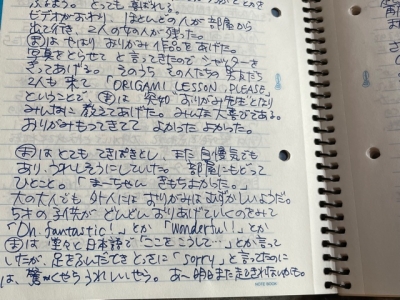 ぶよう。とっても 喜ばれる。
ビデオがおわり、ほとんどの人が 部屋から
出て行き、2人の女の人が 残った。
ま は やはり おりがみ作品を あげた。
写真をとらせて と言ってきたので シャッターを
とってあげる。 そのうち その人たちの 男友だち
2人も 来て 「ORIGAMI LESSON, PLEASE」
ということで、ま は 突如 おりがみ先生となり
みんなに 教えてあげた。みんな 大喜びである。
おりがみもってきてて よかった よかった。
ま は とても てきぱきとし、また 自慢気でも
あり、うれしそうにしていた。 部屋にもどって
ひとこと。「まーちゃん きもちよかった。」
大の大人でも、外人には おりがみは むずかしいようだ。
5才の子供が どんどん おりあげていくのをみて
「Oh, fantastic!」とか「Wonderful!」とか
ま は 堂々と日本語で「ここをこうして…」とか言って
いたが、足をふんだてきとっさに「sorry」と言ってたのに
は、驚くやらうれしいやら。 あー 明日また